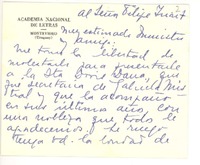 ACADEMIA NACIONAL
DE LETRAS
MONTEVIDEO
(Uruguay)
al Señor Felipe
Muy estimado Ministro
amigo:
Me tomo la libertad de
molestarlo para presentarle
a la Sta Doris Dana, que
fue secretaria de Gabriela Mis-
tral y que la acompañó
en sus últimos años con
una nobleza que todos le
agradecemos. Le ruego
tenga Vd. la bondad de